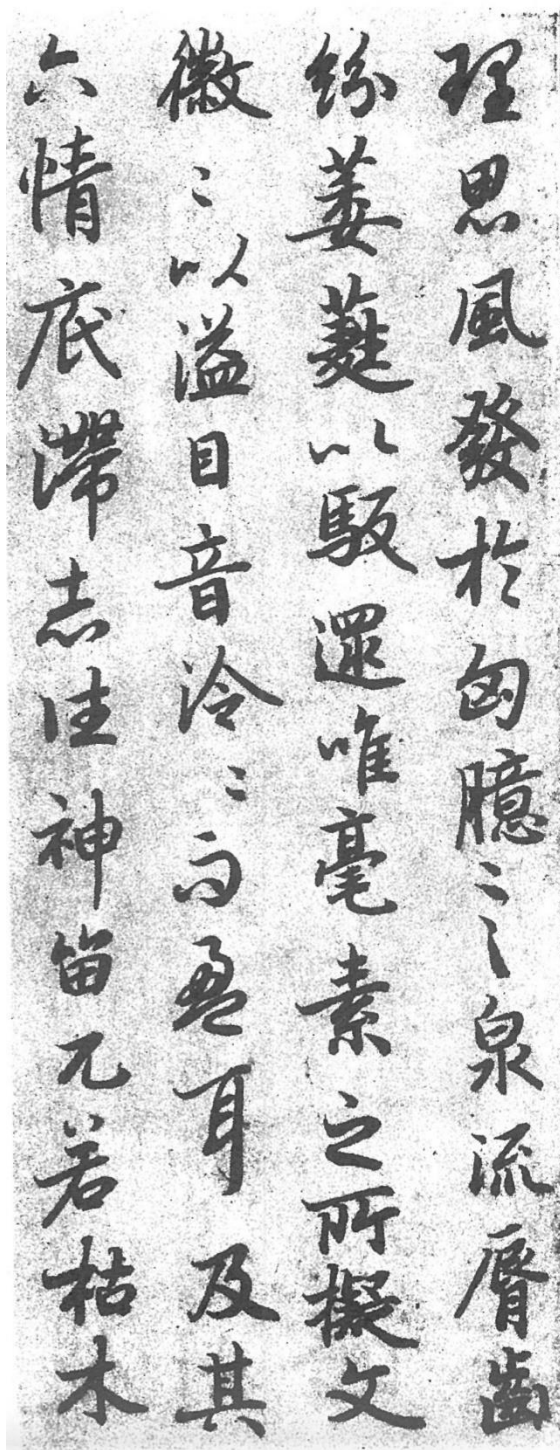 理思風發於匈臆言泉流脣齒
紛葳蕤以馺遝唯毫素之所擬文
徽〻以溢目音泠〻而盈耳及其
六情底滯志往神留兀若枯木